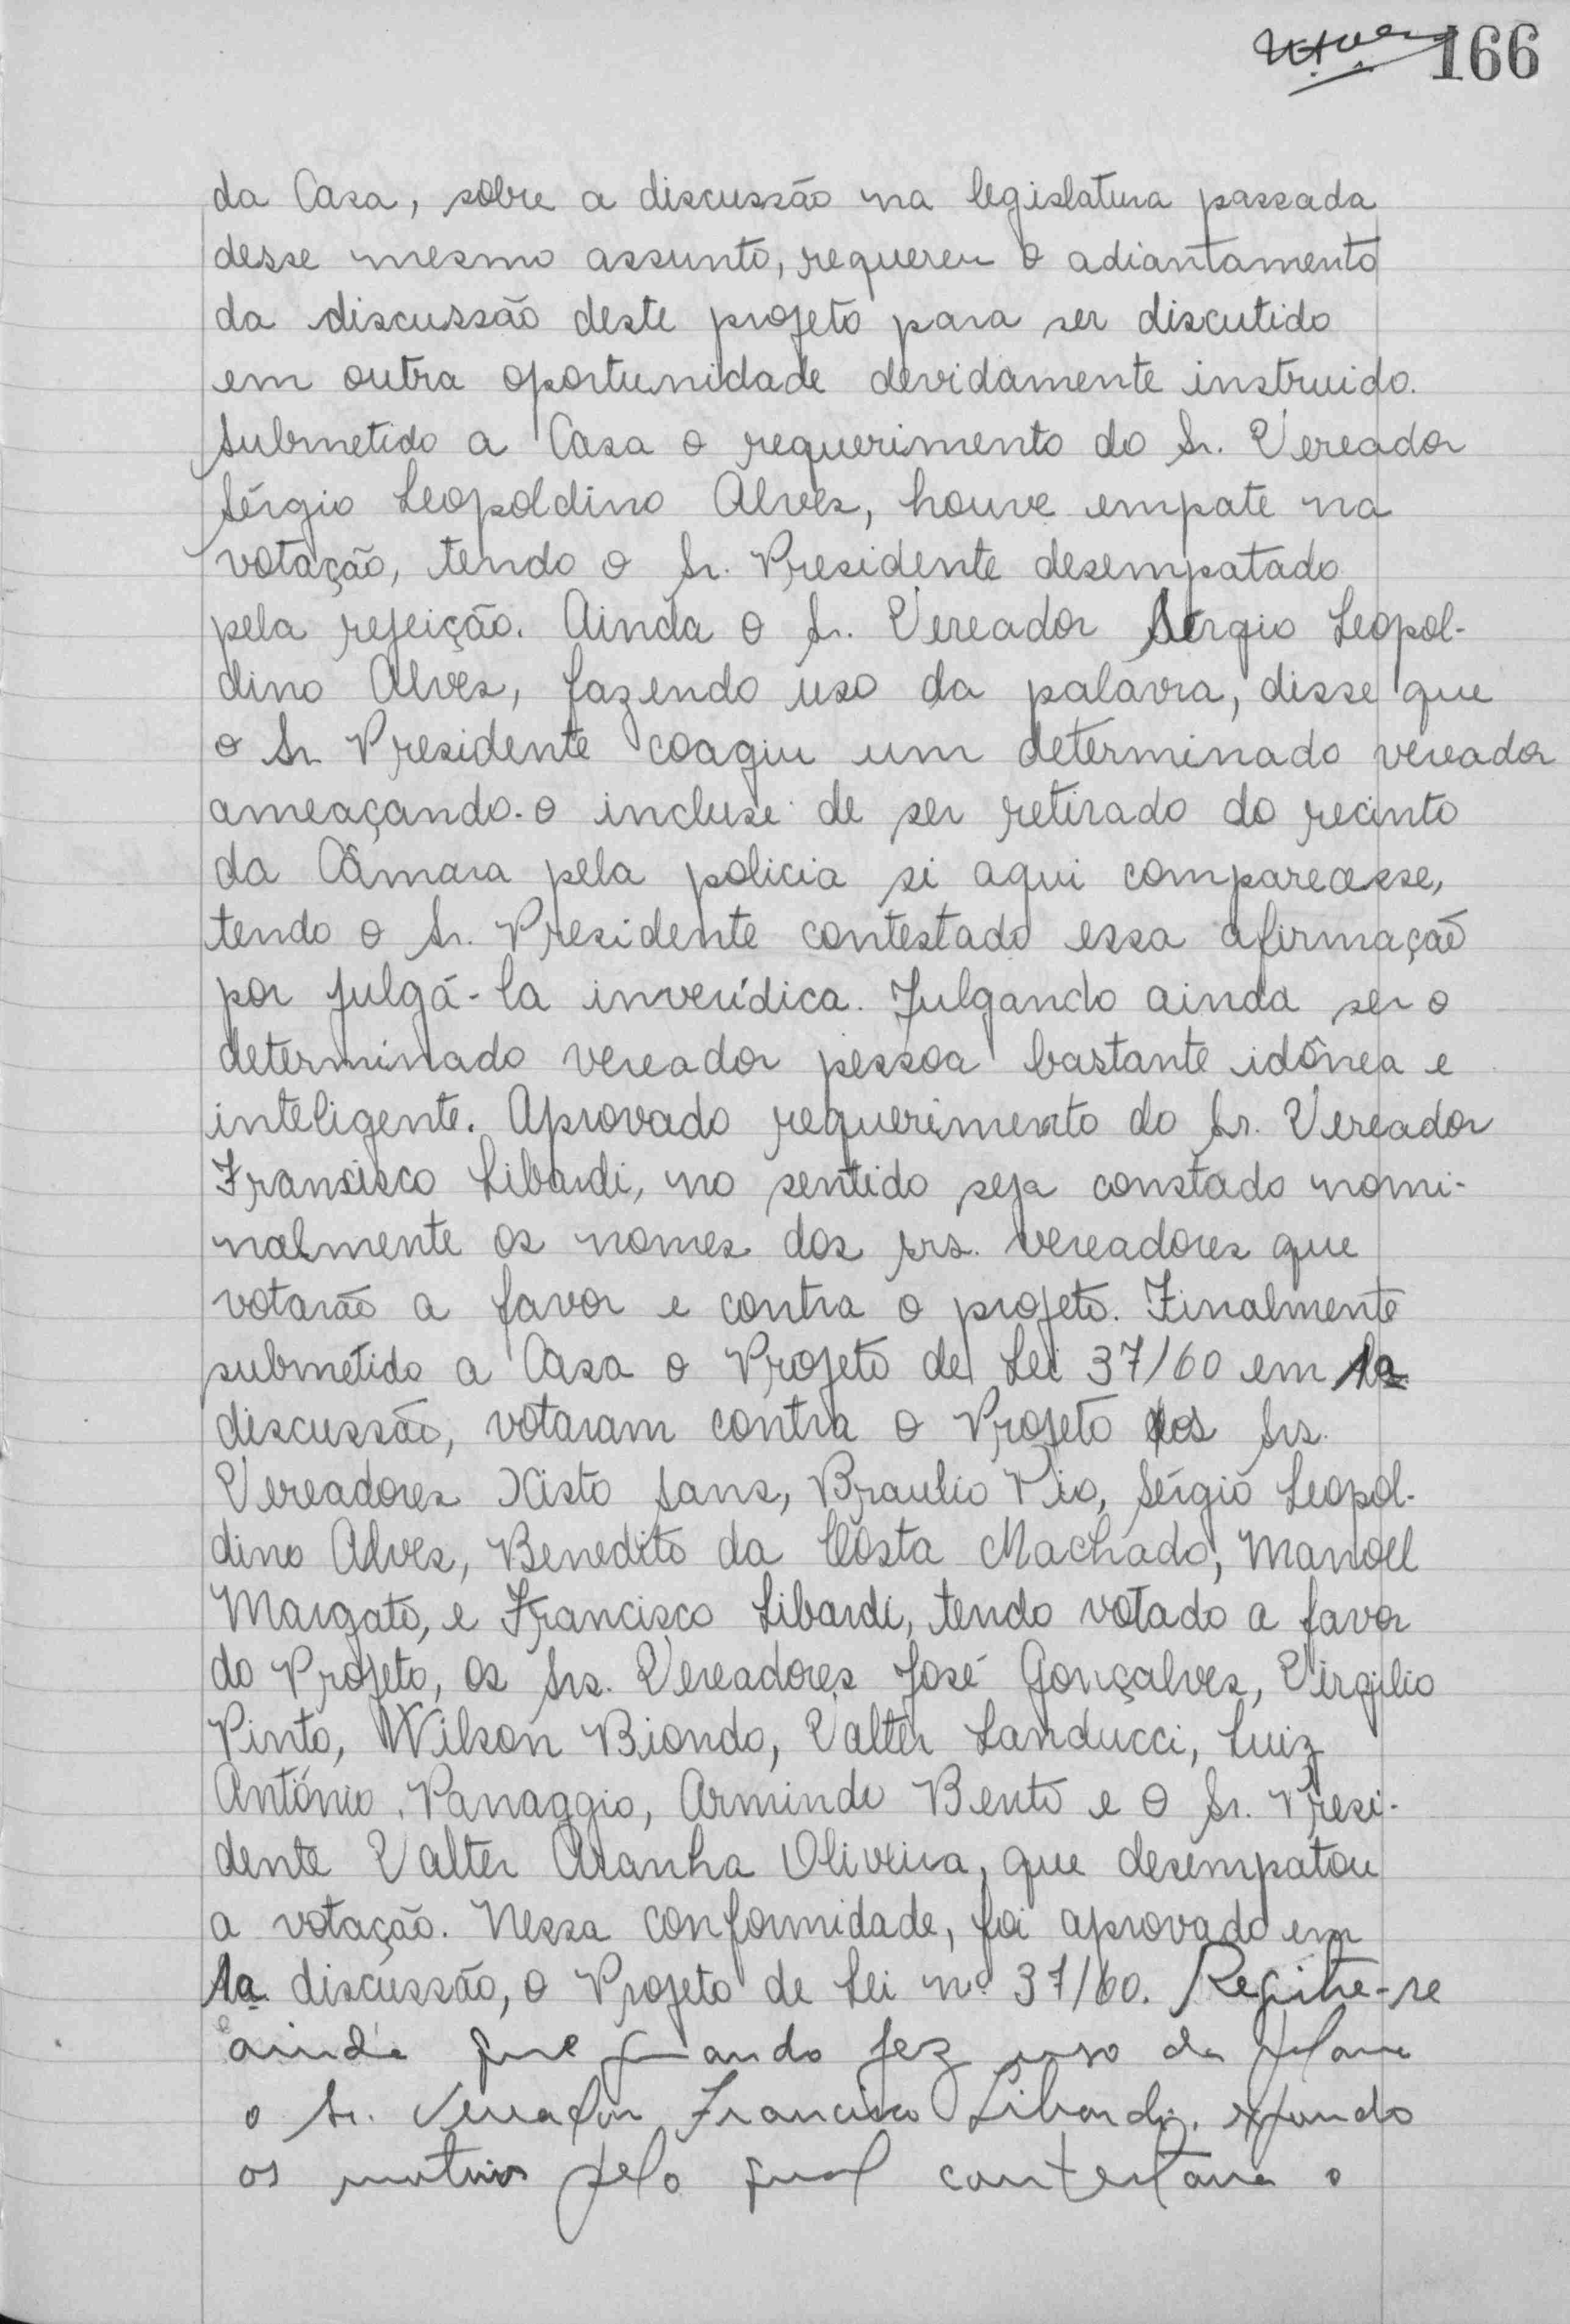 166
da Casa, sôbre a discussão na legislatura passada
desse mesmo assunto, requereu o adiantamento
da discussão deste projeto para ser discutido
em outra oportunidade devidamente instruido.
Submetido a Casa o requerimento do Sr. Vereador
Sérgio Leopoldino Alves, houve empate na
votação, tendo o Sr. Presidente desempatado
pela rejeição. Ainda o Sr. Vereador Sérgio Leopol-
dino Alves, fazendo uso da palavra, disse que
o Sr Presidente coagiu um determinado vereador
ameaçando-o incluse de ser retirado do recinto
da Câmara pela policia si aqui comparecesse,
tendo o Sr. Presidente contestado essa afirmação
por julgá-la inverídica. Julgando ainda ser o
determinado vereador pessoa bastante idônea e
inteligente. Aprovado requerimento do Sr. Vereador
Francisco Libardi, no sentido seja constado nomi-
nalmente os nomes dos srs. vereadores que
votarão a favor e contra o projeto. Finalmente
submetido a Casa o Projeto de Lei 37/60 em 1a
discussão, votaram contra o Projeto os Srs.
Vereadores Xisto Sans, Braulio Pio, Sérgio Leopol-
dino Alves, Benedito da Costa Machado, Manoel
Margato, e Francisco Libardi, tendo votado a favor
do Projeto, os Srs. Vereadores José Gonçalves, Virgilio
Pinto, Wilson Biondo, Valter Landucci, Luiz
Antônio Panaggio, Armindo Bento e o Sr. Presi-
dente Valter Aranha Oliveira, que desempatou
a votação. Nessa conformidade, foi aprovado em
1a discussão, o Projeto de Lei nº 37/60. Registre-se
ainda que quando fez uso da palavra
o Sr. Vereador Francisco Libardi, expondo
os motivos pelo qual contestava o